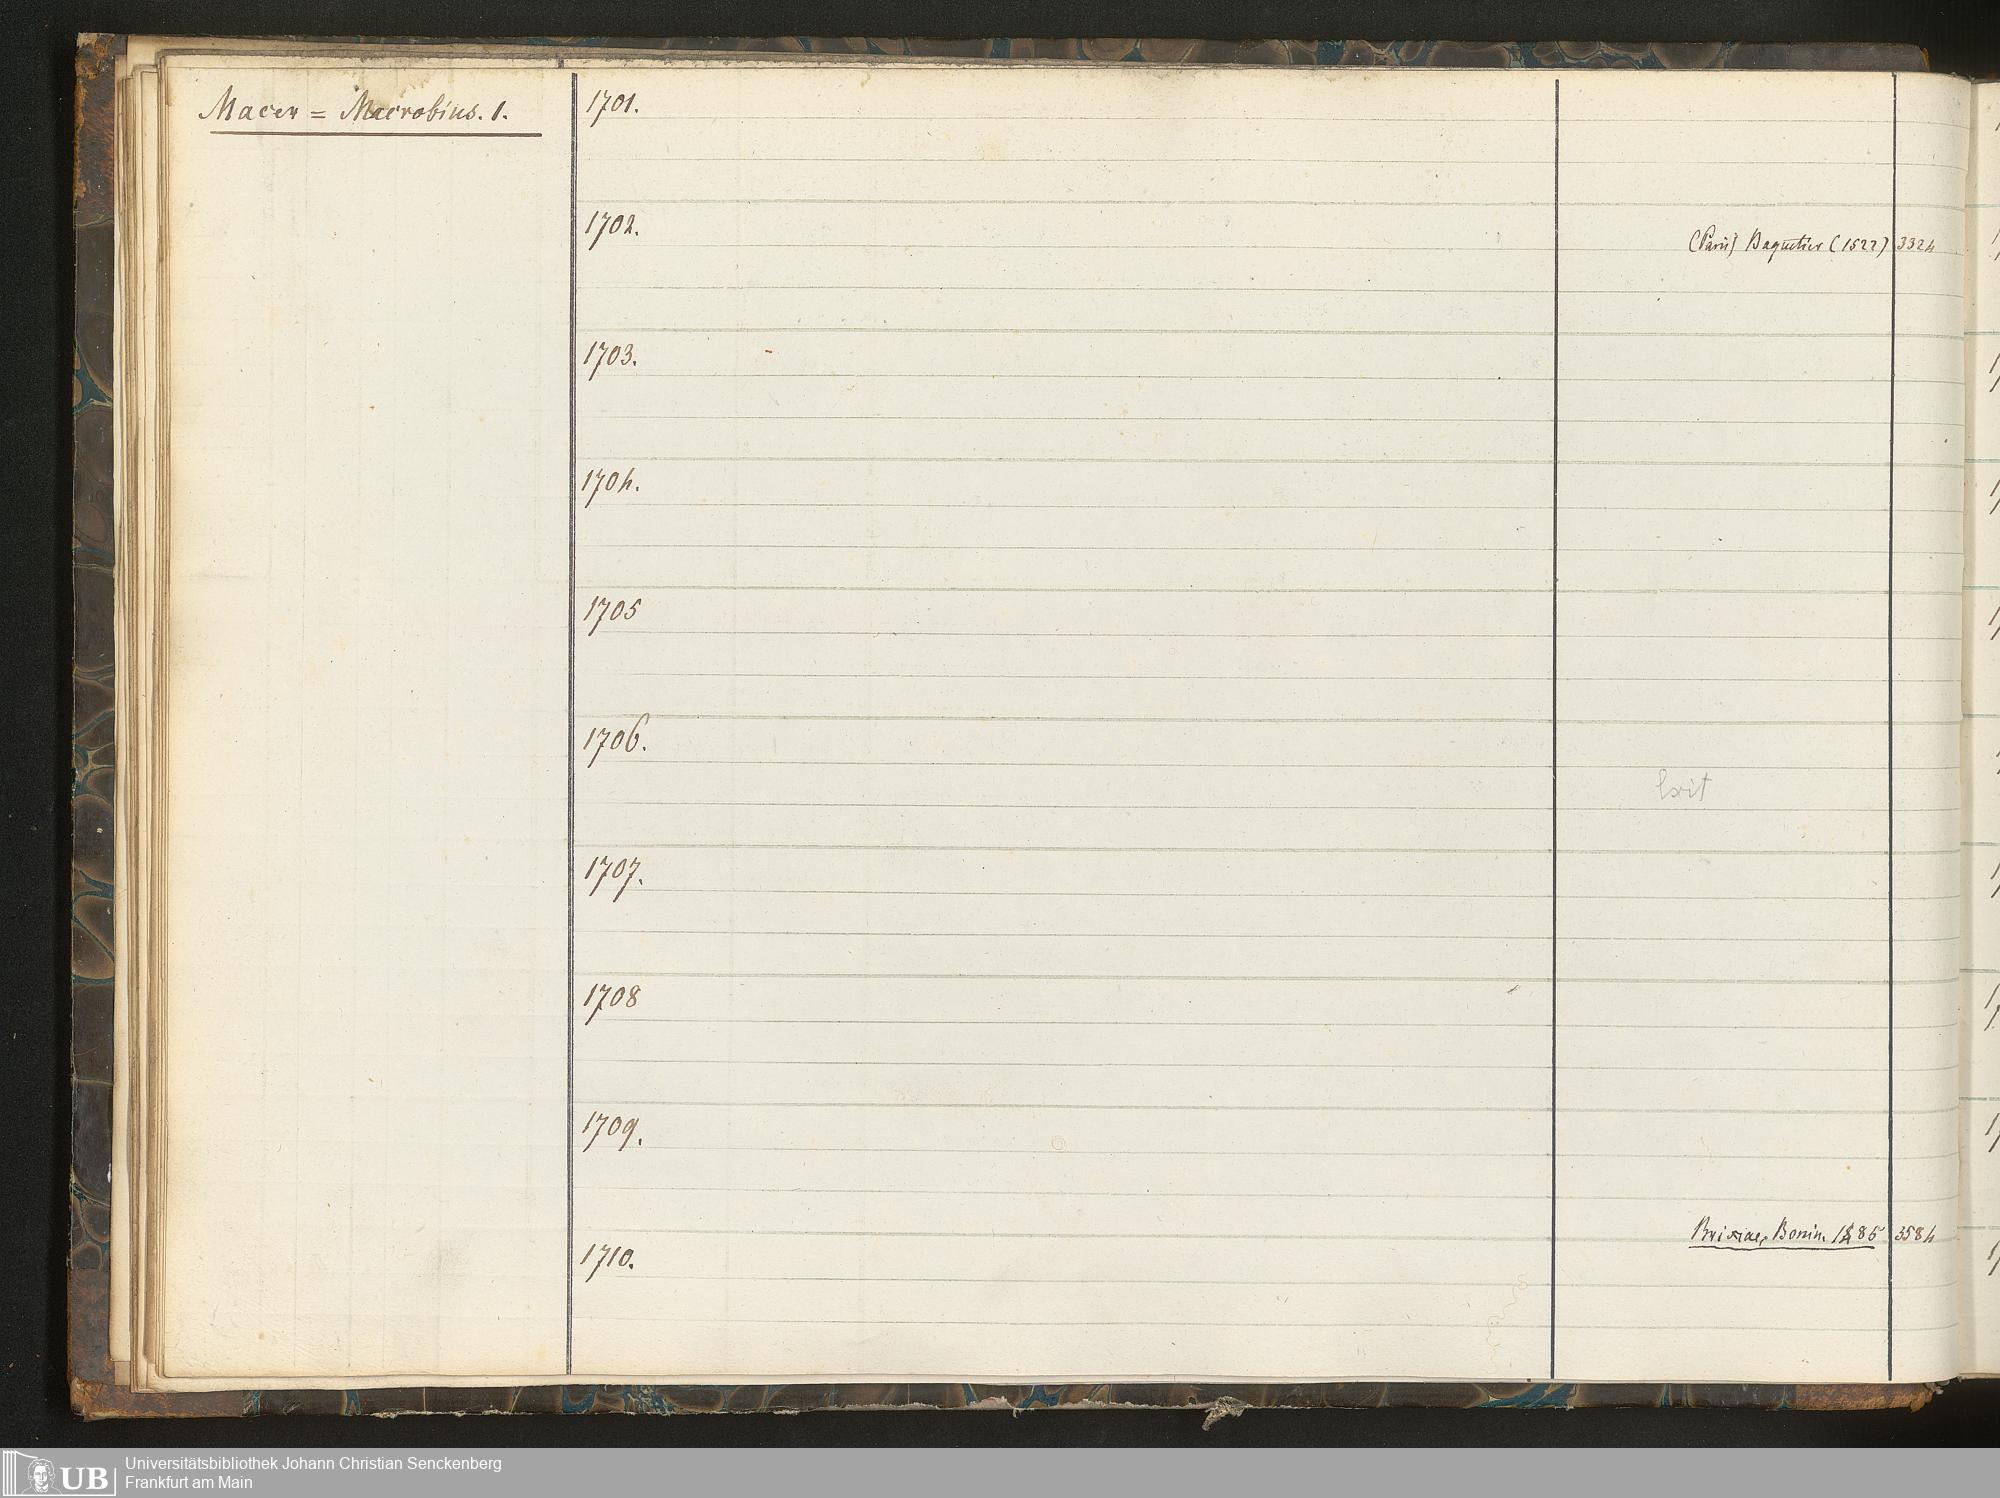 Macer = Macrobius. 1.
1701.
1702.
(Paris) Baquetier (1522) 3324
1703.
1704.
1705
1706.
1707.
1708
1709.
Brixiae, Bonin. 1485 3584
1710.
UB
Universitätsbibliothek Johann Christian Senckenberg
Frankfurt am Main